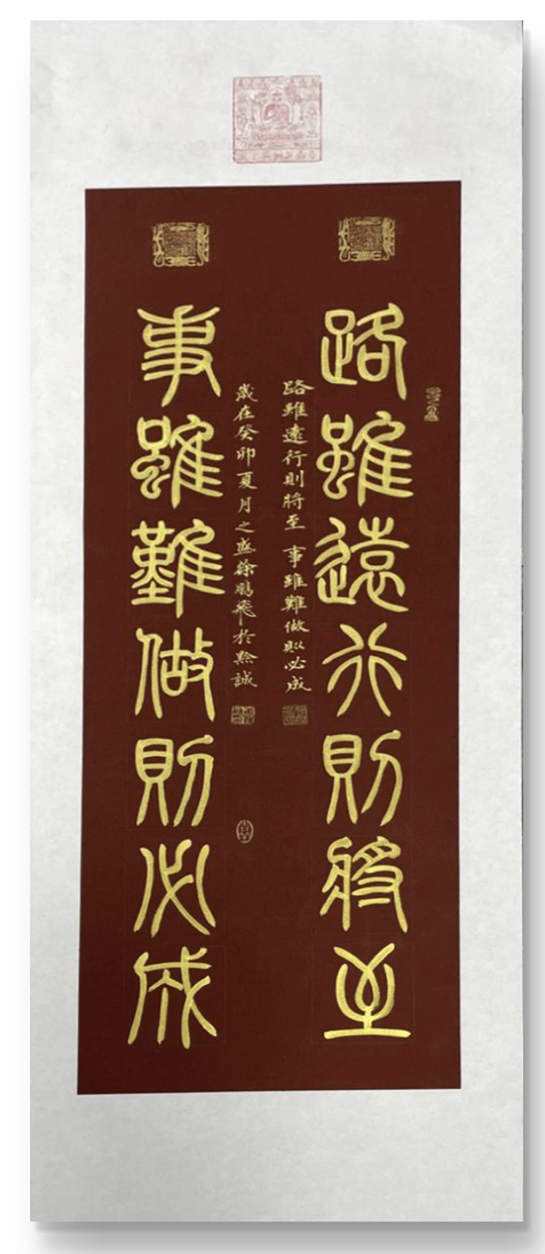 路雖遠行則將至
路雖遠行則將至 事雖難做則必成
歲在癸卯夏月之盛徐鵬飛於黔誠
事雖難做則必成